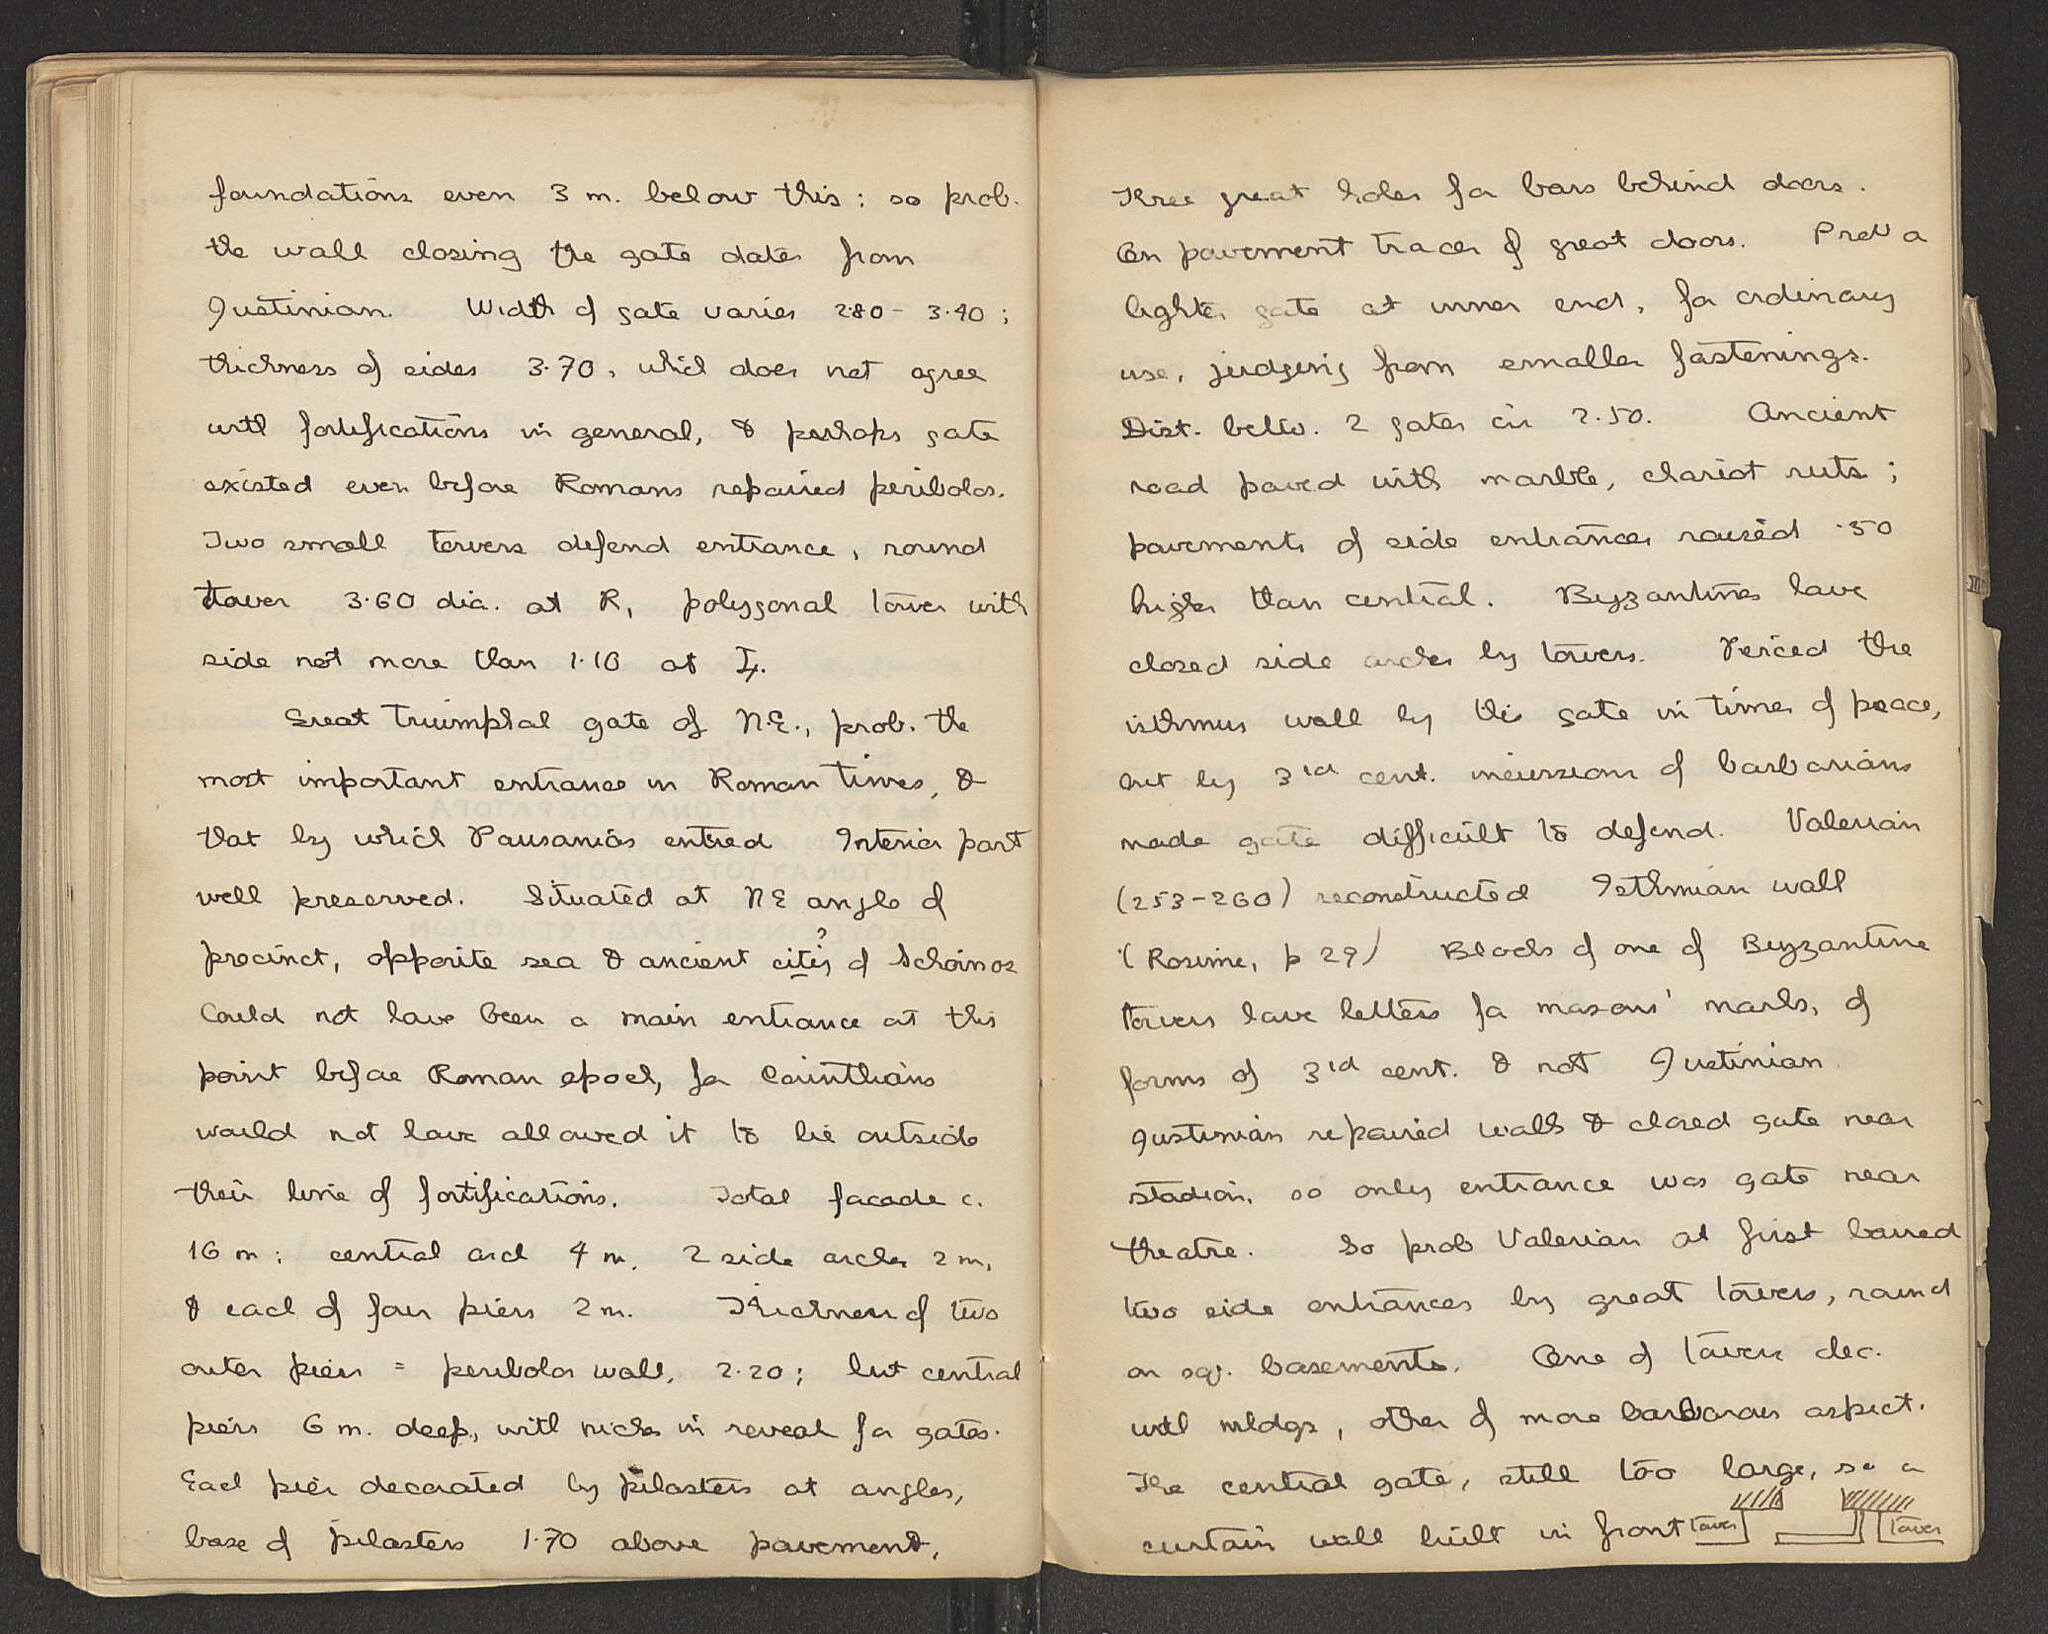 foundations even 3 m. below this: so prob.
the wall closing the gate dates from
Justinian. Width of gate varies 2.80 - 3.40;
thickness of sides 3.70, which does not agree
with fortifications in general, & perhaps gate
existed even before Romans repaired peribolos.
Two small towers defend entrance, round
tower 3.60 dia. at R, polygonal tower with
side not more than 1.10 at L.
Great Triumphal gate of N.E., prob. the
most important entrance in Roman times, &
that by which Pausanias entred Interior part
well preserved. Situated at NE angle of
?
precinct, opposite sea & ancient cit of Schoinos
Could not have been a main entrance at this
point before Roman epoch, for Corinthians
would not have allowed it to lie outside
their line of fortifications. Total facade c.
16 m; central arch 4 m, 2 side arches 2 m,
& each of four piers 2 m. Thickness of two
outer piers = peribolos wall, 2.20; but central
piers 6 m. deep, with niches in reveal for gates.
Each pier decorated by pilasters at angles,
base of pilasters 1.70 above pavement,
Three great holes for bars behind doors.
On pavement traces of great doors. Prob a
lighter gate at inner end, for ordinary
use, judging from smaller fastenings.
Dist. betw. 2 gates cir 2.50. Ancient
road paved with marble, chariot ruts;
pavements of side entrances raised .50
higher than central. Byzantines have
closed side arches by towers. Pierced the
isthmus wall by this gate in times of peace,
but by 3rd cent. incursions of barbarians
made gate difficult to defend. Valerian
(253-260) reconstructed Isthmian wall
(Rosime, p 29) Blocks of one of Byzantine
towers have letters for masons' marks, of
forms of 3rd cent. & not Justinian.
Justinian repaired walls & closed gate near
stadion, so only entrance was gate near
theatre. So prob Valerian at first barred
two side entrances by great towers, round
on sq. basements. One of towers dec.
with mldgs, other of more barbarous aspect.
The central gate, still too large, so a
curtain wall built in front tower tower